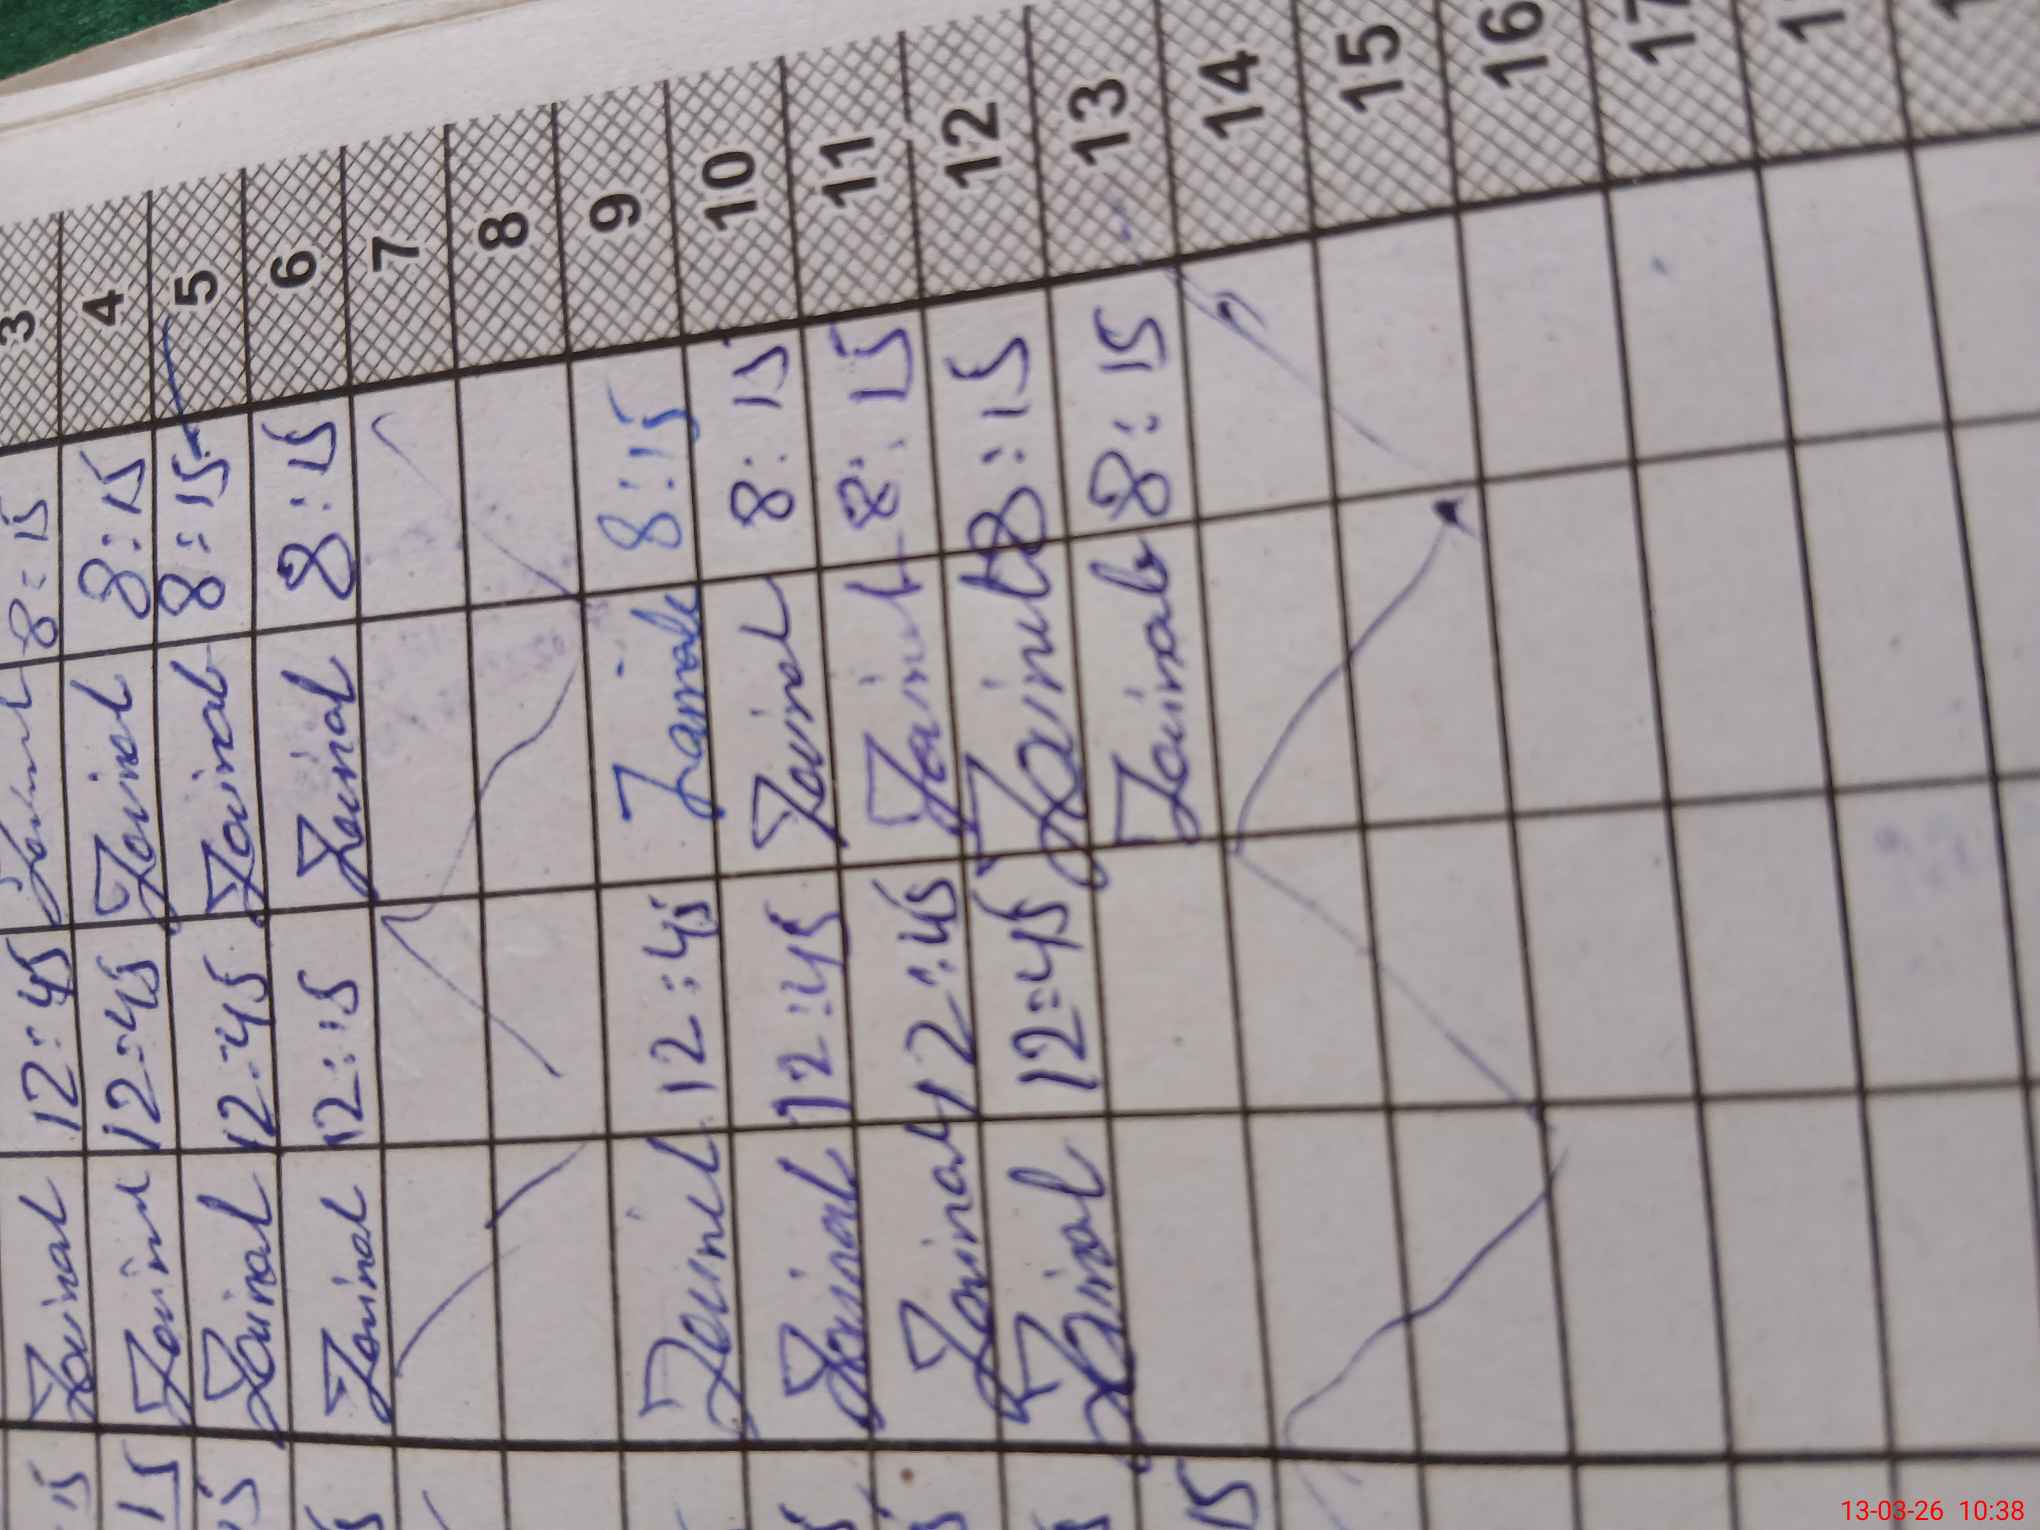 3 8:15 Zainab 12:45 Zainab 15
4 8:15 Zainab 12:45 Zainab 15
5 8:15 Zainab 12:45 Zainab 15
6 8:15 Zainab 12:15 Zainab
7
8
9 8:15 Zainab 12:45 Zainab
10 8:15 Zainab 12:45 Zainab
11 8:15 Zainab 12:45 Zainab
12 8:15 Zainab 12:45 Zainab
13 8:15 Zainab 15
14
15
16
17
13-03-26 10:38